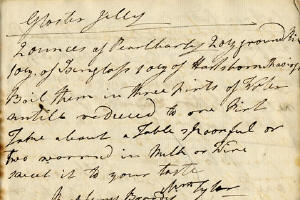 Gloster Jelly
2 ounces of Pearlbarly 2 oz ground Rice
1 oz. of Isenglass 1 oz of Hartshorn shavings
Boil them in three Pints of Water
untill reduced to one Pint
Take about a Table spoonful or
two warmed in Milk or Wine
sweet it to your taste
Wm Tyler